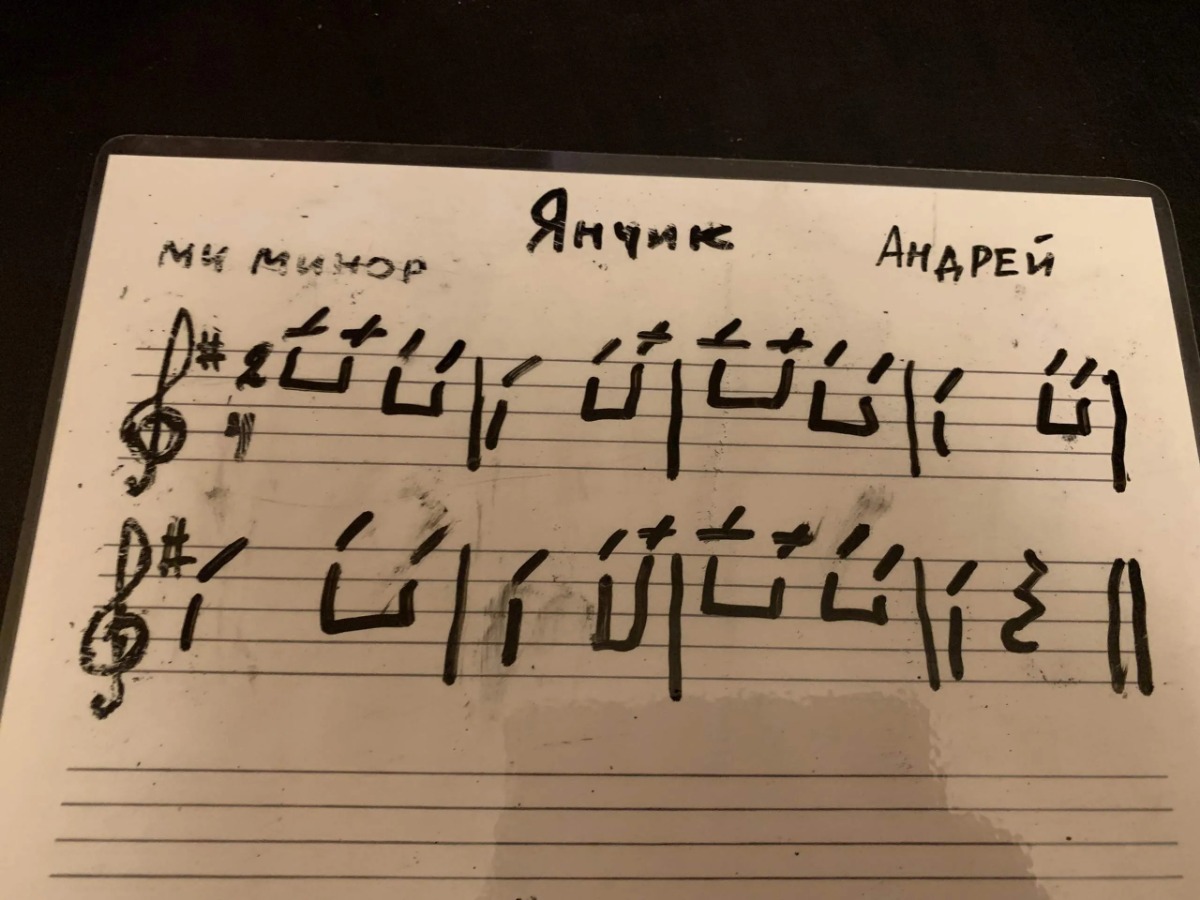 Янчик
ми минор
Андрей
2
4